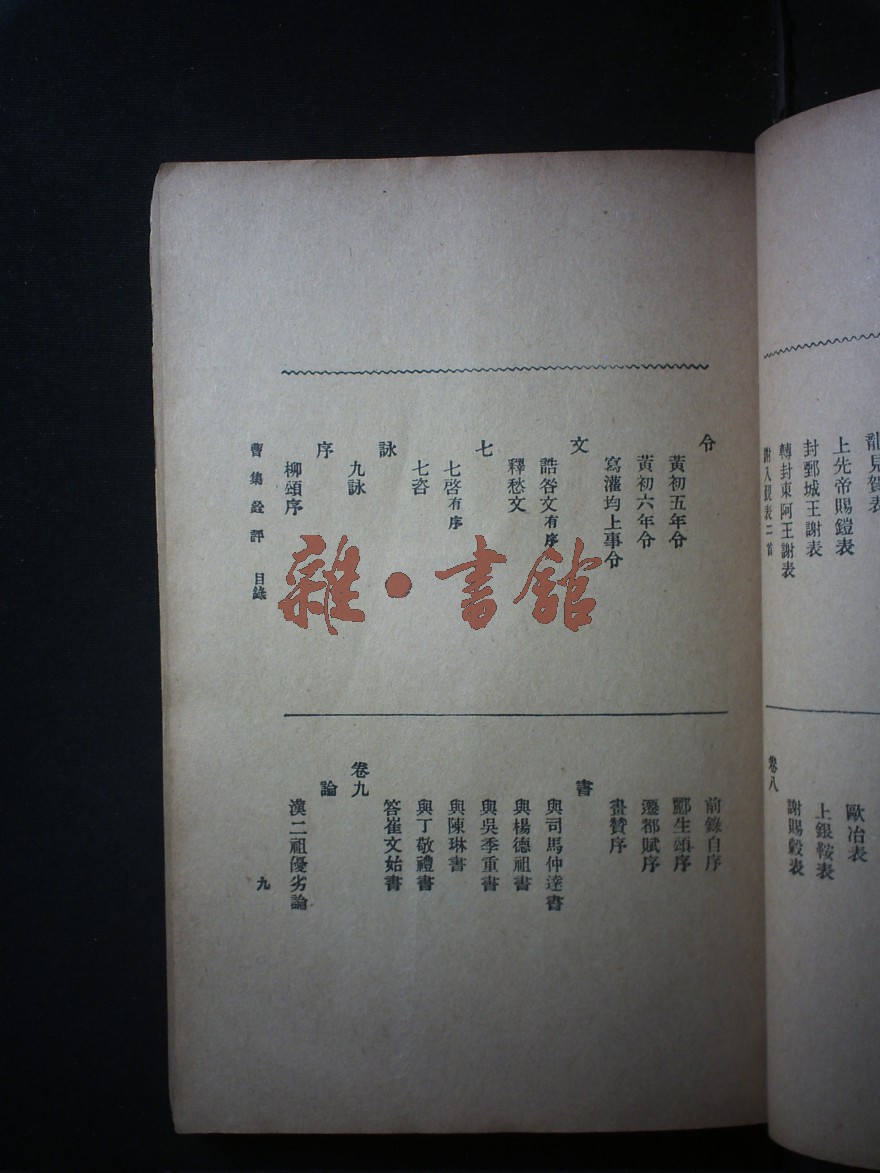 龍見賀表
上先帝賜鎧表
封鄄城王謝表
轉封東阿王謝表
謝入覲表二首
歐冶表
上銀鞍表
謝賜穀表
卷八
令
黃初五年令
黃初六年令
寫灌均上事令
文
誥咎文有序
釋愁文
七
七啓有序
七咨
詠
九詠
序
柳頌序
前錄自序
酈生頌序
遷都賦序
畫贊序
書
與司馬仲達書
與楊德祖書
與吳季重書
與陳琳書
與丁敬禮書
答崔文始書
卷九
論
漢二祖優劣論
曹集銓評 目錄
九
雜·書館